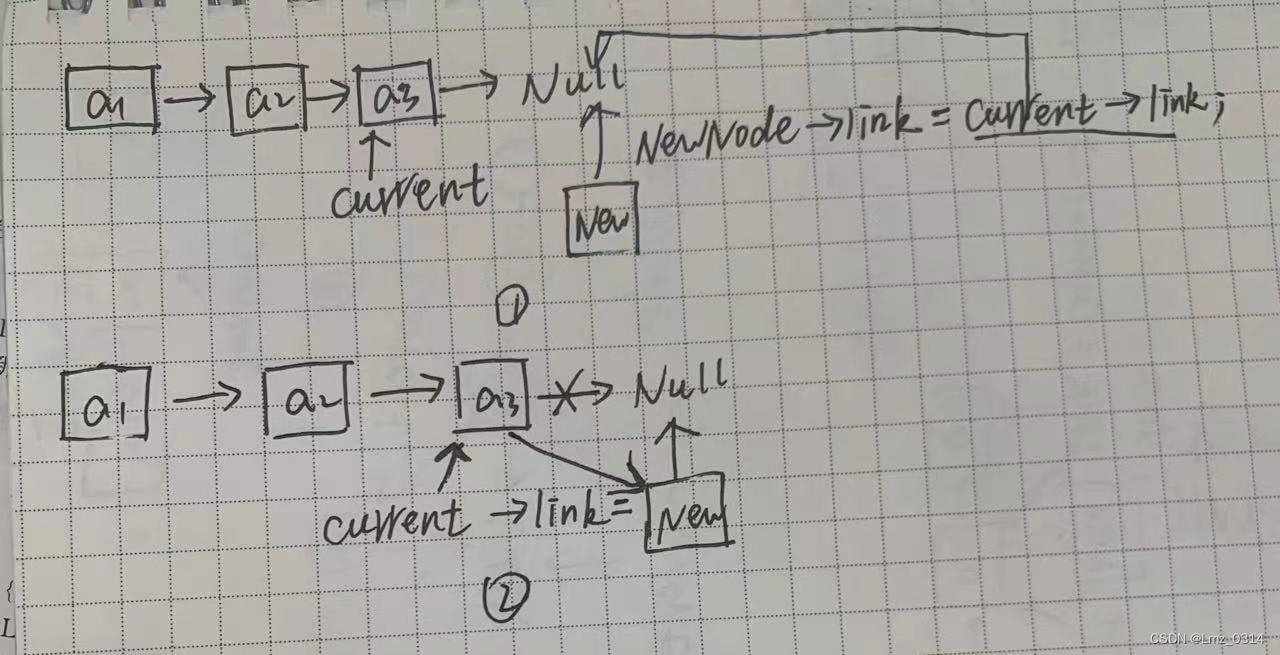 a1 → a2 → a3 → Null
NewNode →link = Current →link;
current
New
①
a1 → a2 → a3 → Null
current →link= New
②
{
L
CSDN @Lmz_0314